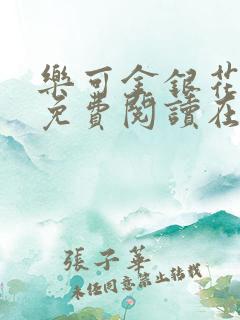 樂可金銀花
免費閱讀在
張子華
未經同意禁止轉載